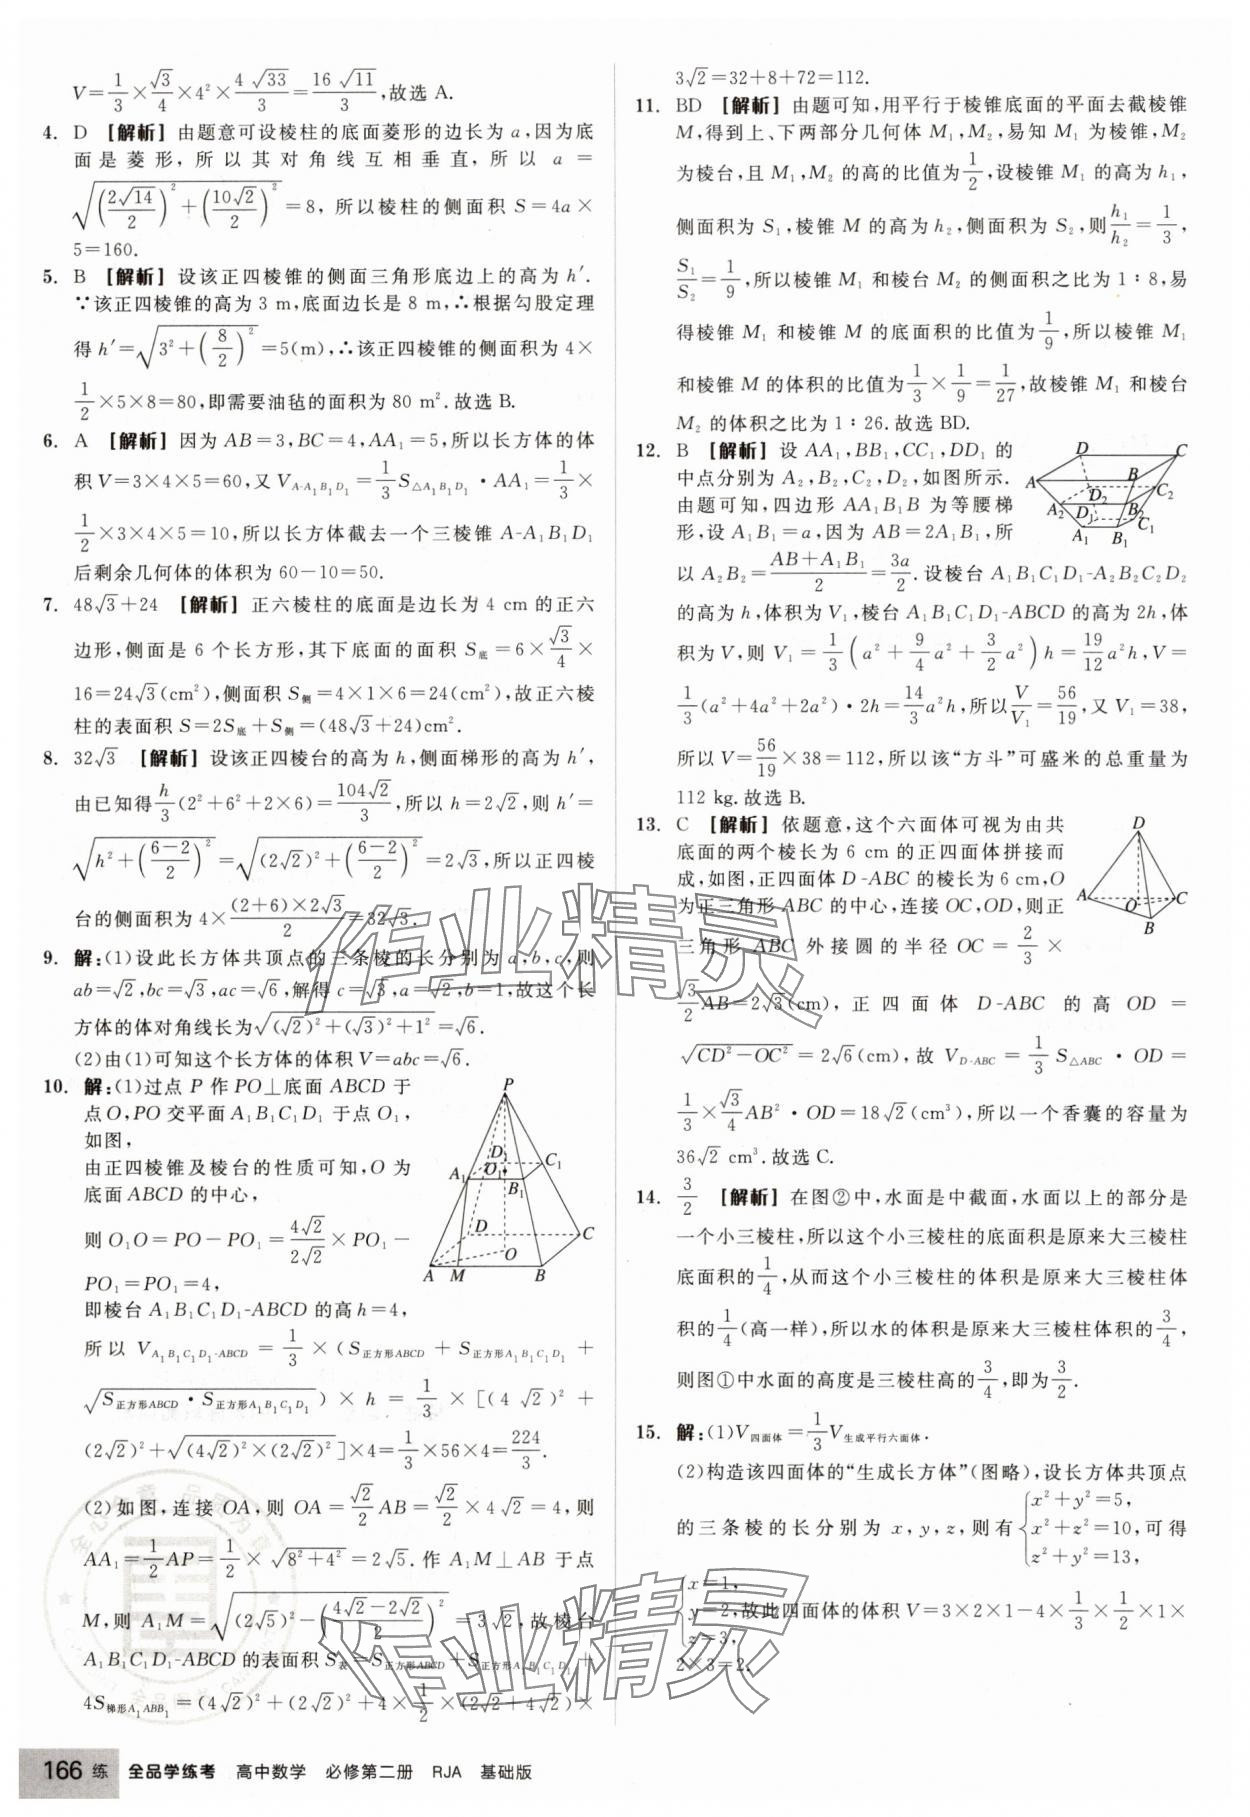 V=1/3×√3/4×4²×4√33/3=16√11/3,故选 A.
4. D 【解析】 由题意可设棱柱的底面菱形的边长为 a,因为底
面是菱形,所以其对角线互相垂直,所以 a=
√((2√14/2)²+(10√2/2)²)=8,所以棱柱的侧面积 S=4a×
5=160.
5. B 【解析】 设该正四棱锥的侧面三角形底边上的高为 h′.
∵该正四棱锥的高为 3 m,底面边长是 8 m,∴根据勾股定理
得 h′=√(3²+(8/2)²)=5(m),∴该正四棱锥的侧面积为 4×
1/2×5×8=80,即需要油毡的面积为 80 m².故选 B.
6. A 【解析】 因为 AB=3,BC=4,AA₁=5,所以长方体的体
积 V=3×4×5=60,又 V_{A-A₁B₁D₁}=1/3 S_{△A₁B₁D₁}·AA₁=1/3×
1/2×3×4×5=10,所以长方体截去一个三棱锥 A-A₁B₁D₁
后剩余几何体的体积为 60-10=50.
7. 48√3+24 【解析】 正六棱柱的底面是边长为 4 cm 的正六
边形,侧面是 6 个长方形,其下底面的面积 S底=6×√3/4×
16=24√3(cm²),侧面积 S侧=4×1×6=24(cm²),故正六棱
柱的表面积 S=2S底+S侧=(48√3+24)cm².
8. 32√3 【解析】 设该正四棱台的高为 h,侧面梯形的高为 h′,
由已知得h/3(2²+6²+2×6)=104√2/3,所以 h=2√2,则 h′=
√(h²+((6-2)/2)²)=√((2√2)²+((6-2)/2)²)=2√3,所以正四棱
台的侧面积为 4×(2+6)×2√3/2=32√3.
9. 解:(1)设此长方体共顶点的三条棱的长分别为 a,b,c,则
ab=√2,bc=√3,ac=√6,解得 c=√3,a=√2,b=1,故这个长
方体的体对角线长为√((√2)²+(√3)²+1²)=√6.
(2)由(1)可知这个长方体的体积 V=abc=√6.
10. 解:(1)过点 P 作 PO⊥底面 ABCD 于
点 O,PO 交平面 A₁B₁C₁D₁ 于点 O₁,
如图,
由正四棱锥及棱台的性质可知,O 为
底面 ABCD 的中心,
则 O₁O=PO-PO₁=4√2/2√2×PO₁-
PO₁=PO₁=4,
即棱台 A₁B₁C₁D₁-ABCD 的高 h=4,
所以 V_{A₁B₁C₁D₁-ABCD}=1/3×(S正方形ABCD+S正方形A₁B₁C₁D₁+
√(S正方形ABCD·S正方形A₁B₁C₁D₁))×h=1/3×[(4√2)²+
(2√2)²+√((4√2)²×(2√2)²)]×4=1/3×56×4=224/3.
(2)如图,连接 OA,则 OA=√2/2 AB=√2/2×4√2=4,则
AA₁=1/2 AP=1/2×√(8²+4²)=2√5.作 A₁M⊥AB 于点
M,则 A₁M=√((2√5)²-((4√2-2√2)/2)²)=3√2,故棱台
A₁B₁C₁D₁-ABCD 的表面积 S表=S正方形ABCD+S正方形A₁B₁C₁D₁+
4S梯形A₁ABB₁=(4√2)²+(2√2)²+4×1/2×(2√2+4√2)×
P
A₁ D₁ O₁ C₁ B₁
D C O
A M B
3√2=32+8+72=112.
11. BD 【解析】 由题可知,用平行于棱锥底面的平面去截棱锥
M,得到上、下两部分几何体 M₁,M₂,易知 M₁ 为棱锥,M₂
为棱台,且 M₁,M₂ 的高的比值为1/2,设棱锥 M₁ 的高为 h₁,
侧面积为 S₁,棱锥 M 的高为 h₂,侧面积为 S₂,则h₁/h₂=1/3,
S₁/S₂=1/9,所以棱锥 M₁ 和棱台 M₂ 的侧面积之比为 1∶8,易
得棱锥 M₁ 和棱锥 M 的底面积的比值为1/9,所以棱锥 M₁
和棱锥 M 的体积的比值为1/3×1/9=1/27,故棱锥 M₁ 和棱台
M₂ 的体积之比为 1∶26.故选 BD.
12. B 【解析】 设 AA₁,BB₁,CC₁,DD₁ 的
中点分别为 A₂,B₂,C₂,D₂,如图所示.
由题可知,四边形 AA₁B₁B 为等腰梯
形,设 A₁B₁=a,因为 AB=2A₁B₁,所
以 A₂B₂=(AB+A₁B₁)/2=3a/2.设棱台 A₁B₁C₁D₁-A₂B₂C₂D₂
的高为 h,体积为 V₁,棱台 A₁B₁C₁D₁-ABCD 的高为 2h,体
积为 V,则 V₁=1/3(a²+9/4a²+3/2a²)h=19/12a²h,V=
1/3(a²+4a²+2a²)·2h=14/3a²h,所以V/V₁=56/19,又 V₁=38,
所以 V=56/19×38=112,所以该“方斗”可盛米的总重量为
112 kg.故选 B.
D C
A B D₂ C₂
A₂ D₁ B₂ C₁
A₁ B₁
13. C 【解析】 依题意,这个六面体可视为由共
底面的两个棱长为 6 cm 的正四面体拼接而
成,如图,正四面体 D-ABC 的棱长为 6 cm,O
为正三角形 ABC 的中心,连接 OC,OD,则正
三角形 ABC 外接圆的半径 OC=2/3×
√3/2AB=2√3(cm),正四面体 D-ABC 的高 OD=
√(CD²-OC²)=2√6(cm),故 V_{D-ABC}=1/3 S_{△ABC}·OD=
1/3×√3/4AB²·OD=18√2(cm³),所以一个香囊的容量为
36√2 cm³.故选 C.
D
A O C
B
14. 3/2 【解析】 在图②中,水面是中截面,水面以上的部分是
一个小三棱柱,所以这个小三棱柱的底面积是原来大三棱柱
底面积的1/4,从而这个小三棱柱的体积是原来大三棱柱体
积的1/4(高一样),所以水的体积是原来大三棱柱体积的3/4,
则图①中水面的高度是三棱柱高的3/4,即为3/2.
15. 解:(1)V四面体=1/3V生成平行六面体.
(2)构造该四面体的“生成长方体”(图略),设长方体共顶点
的三条棱的长分别为 x,y,z,则有{x²+y²=5, x²+z²=10, z²+y²=13,可得
{x=1, y=2, z=3,故此四面体的体积 V=3×2×1-4×1/3×1/2×1×
2×3=2.
作业精灵
作业精灵
166 练 全品学练考 高中数学 必修第二册 RJA 基础版